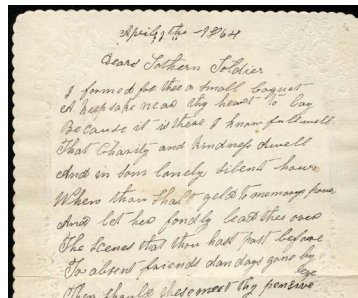 April the 1864
Dear Sothern Soldier
I formed for thee a small boquet
A keepsake near thy heart to lay
Because it is there I know full well
That Charity and kindness dwell
And in som lonely silent hour
When thou shalt to memorys
And let her fondly lead thee oer
The Scenes that thou hast past before
To absent friends days gone by
Then should these meet thy pensive